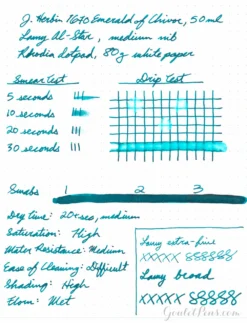 J. Herbin 1670 Emerald of Chivor, 50ml
Lamy Al-Star, medium nib
Rhodia dotpad, 80g white paper
Smear test
Drip test
5 seconds
10 seconds
20 seconds
30 seconds
Swabs 1 2 3
Dry time: 20+sec, medium
Saturation: High
Water Resistance: Medium
Ease of Cleaning: Difficult
Shading: High
Flow: Wet
Lamy extra-fine
xxxxx 8888888
Lamy broad
xxxxx 8888888
GouletPens.com